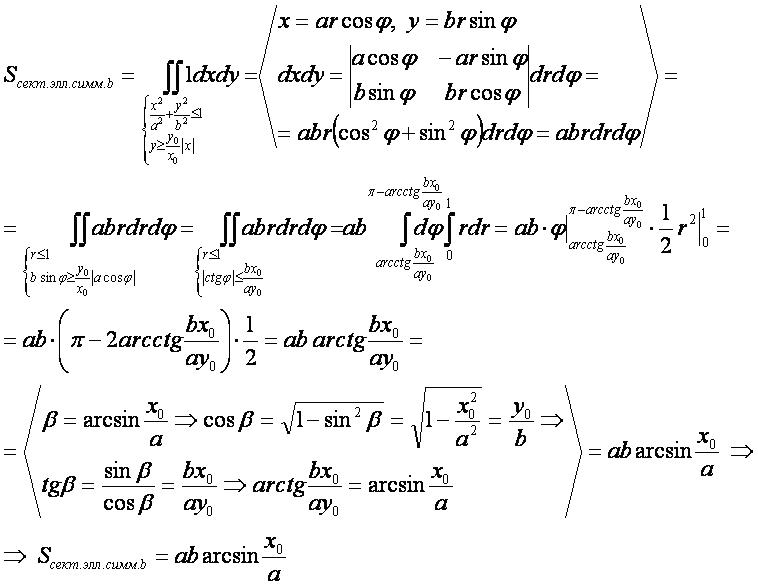 S_{сект.элл.симм.b} = ∬_{{x²/a² + y²/b² ≤ 1; y ≥ (y₀/x₀)|x|}} 1dxdy = ⟨ x = ar cosφ, y = br sinφ
dxdy = |a cosφ  −ar sinφ; b sinφ  br cosφ| drdφ =
= abr(cos²φ + sin²φ)drdφ = abrdrdφ ⟩ =
= ∬_{{r≤1; b sinφ ≥ (y₀/x₀)|a cosφ|}} abrdrdφ = ∬_{{r≤1; |ctgφ| ≤ bx₀/ay₀}} abrdrdφ = ab ∫_{arcctg bx₀/ay₀}^{π−arcctg bx₀/ay₀} dφ ∫_0^1 rdr = ab · φ|_{arcctg bx₀/ay₀}^{π−arcctg bx₀/ay₀} · 1/2 r²|_0^1 =
= ab · (π − 2arcctg bx₀/ay₀) · 1/2 = ab arctg bx₀/ay₀ =
= ⟨ β = arcsin x₀/a ⇒ cos β = √(1 − sin² β) = √(1 − x₀²/a²) = y₀/b ⇒
tgβ = sin β/cos β = bx₀/ay₀ ⇒ arctg bx₀/ay₀ = arcsin x₀/a ⟩ = ab arcsin x₀/a ⇒
⇒ S_{сект.элл.симм.b} = ab arcsin x₀/a